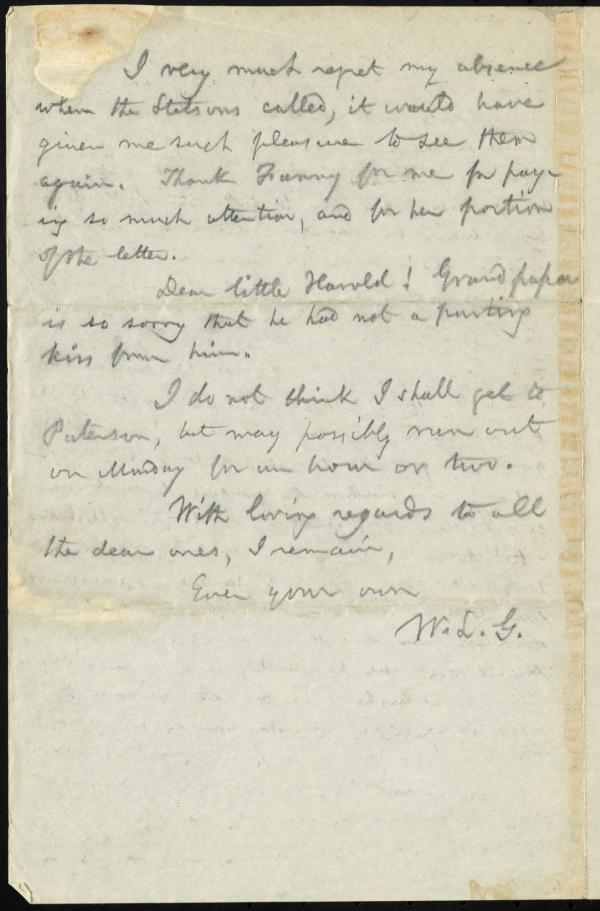 I very much regret my absence
when the Stetsons called, it would have
given me such pleasure to see them
again. Thank Fanny for me for pay-
ing so much attention, and for her portion
of the letter.
Dear little Harold! Grandpapa
is so sorry that he had not a parting
kiss from him.
I do not think I shall get to
Paterson, but may possibly run out
on Monday for an hour or two.
With loving regards to all
the dear ones, I remain,
Ever your own
W. L. G.